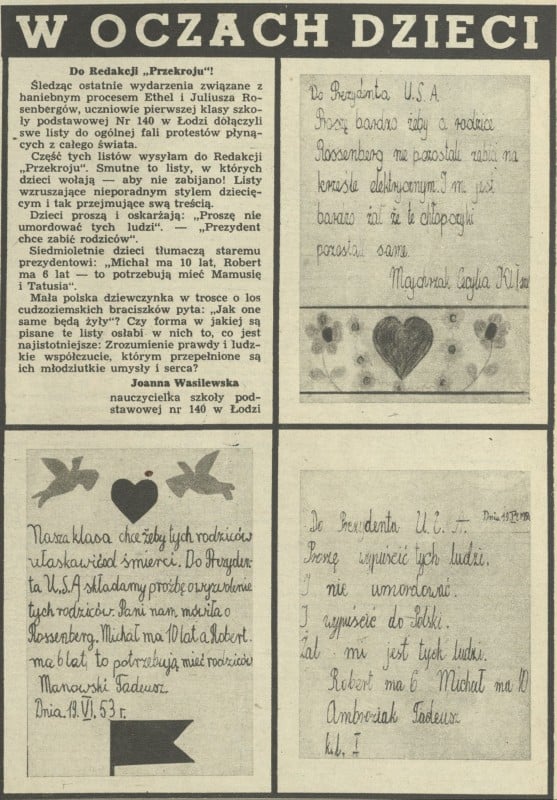 W OCZACH DZIECI
Do Redakcji „Przekroju“!
Śledząc ostatnie wydarzenia związane z
haniebnym procesem Ethel i Juliusza Ro-
senbergów, uczniowie pierwszej klasy szko-
ły podstawowej Nr 140 w Łodzi dołączyli
swe listy do ogólnej fali protestów płyną-
cych z całego świata.
Część tych listów wysyłam do Redakcji
„Przekroju“. Smutne to listy, w których
dzieci wołają — aby nie zabijano! Listy
wzruszające nieporadnym stylem dziecię-
cym i tak przejmujące swą treścią.
Dzieci proszą i oskarżają: „Proszę nie
umordować tych ludzi“. — „Prezydent
chce zabić rodziców“.
Siedmioletnie dzieci tłumaczą staremu
prezydentowi: „Michał ma 10 lat, Robert
ma 6 lat — to potrzebują mieć Mamusię
i Tatusia“.
Mała polska dziewczynka w trosce o los
cudzoziemskich braciszków pyta: „Jak one
same będą żyły“? Czy forma w jakiej są
pisane te listy osłabi w nich to, co jest
najistotniejsze: Zrozumienie prawdy i ludz-
kie współczucie, którym przepełnione są
ich młodziutkie umysły i serca?
Joanna Wasilewska
nauczycielka szkoły pod-
stawowej nr 140 w Łodzi
Do Prezydenta U.S.A
Proszę bardzo żeby a rodzice
Rossenberg nie pozostali zabici na
krześle elektrycznym. I mi jest
bardzo żal że te chłopczyki
pozostali same.
Majchrzak Cecylia Kl I
Nasza klasa chce żeby tych rodziców
ułaskawić od śmierci. Do Prezyden-
ta U.S.A składamy prożbę o wyzwolenie
tych rodziców. Pani nam mówiła o
Rossenberg. Michał ma 10 lat a Robert.
ma 6 lat, to potrzebują mieć rodziców
Manowski Tadeusz.
Dnia. 19. VI. 53 r.
Do Prezydenta U.S.A Dnia 19
Proszę wypuścić tych ludzi.
I nie umordować.
I wypuścić do Polski.
Żal mi jest tych ludzi.
Robert ma 6 Michał ma 10
Ambroziak Tadeusz
kl. I